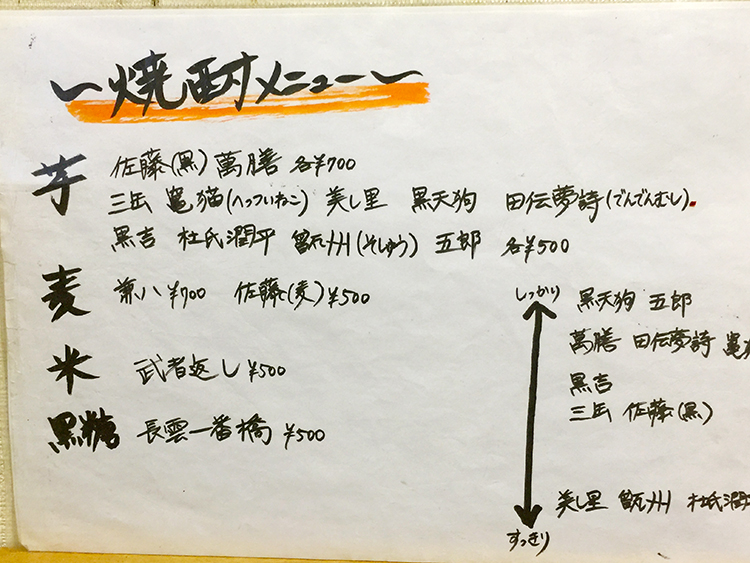 ～焼酎メニュー～
芋 佐藤(黒) 萬膳 各¥700
三岳 竈猫(へっついねこ) 美し里 黒天狗 田伝夢詩(でんでんむし)
黒吉 杜氏潤平 甑州(そしゅう) 五郎 各¥500
麦 兼八¥700 佐藤(麦)¥500
米 武者返し¥500
黒糖 長雲一番橋 ¥500
しっかり
黒天狗 五郎
萬膳 田伝夢詩
黒吉
三岳 佐藤(黒)
美し里 甑州 杜氏潤
すっきり